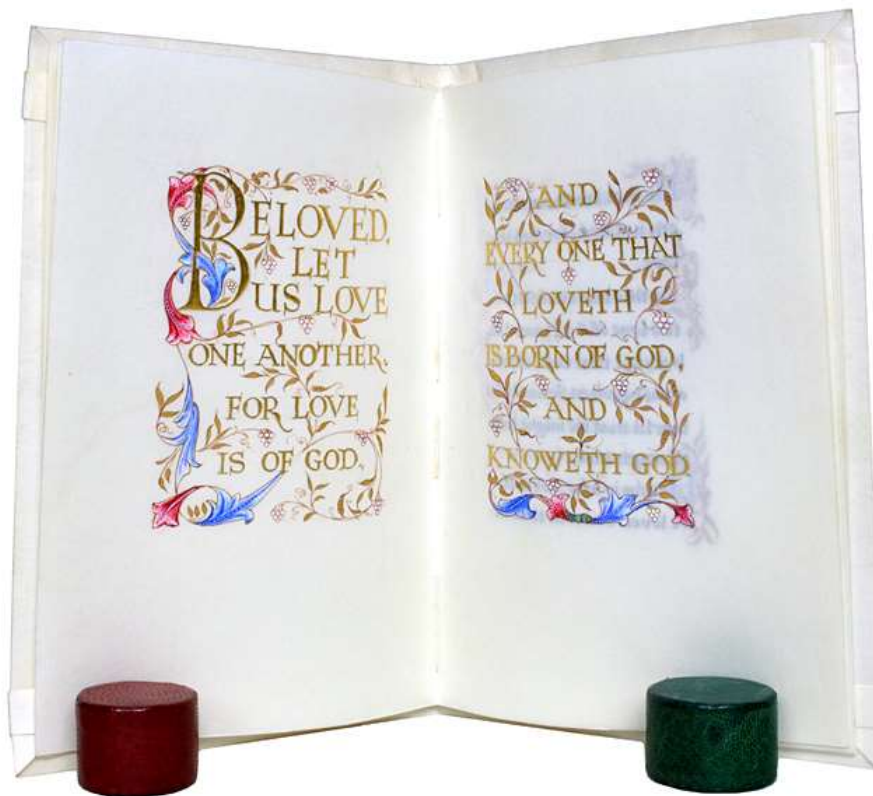 BELOVED,
LET
US LOVE
ONE ANOTHER:
FOR LOVE
IS OF GOD,
AND
EVERY ONE THAT
LOVETH
IS BORN OF GOD,
AND
KNOWETH GOD.